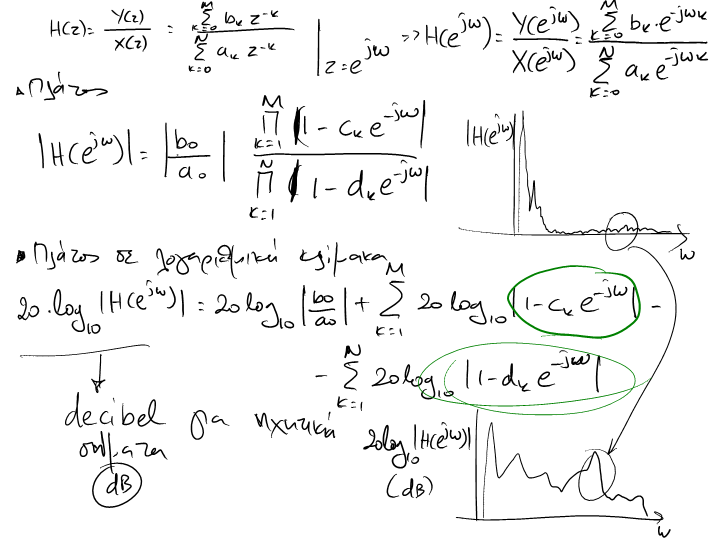 H(z) = Y(z) / X(z) = ∑_{k=0}^{M} b_k z^{-k} / ∑_{k=0}^{N} a_k z^{-k} |_{z=e^{jω}} => H(e^{jω}) = Y(e^{jω}) / X(e^{jω}) = ∑_{k=0}^{M} b_k · e^{-jωk} / ∑_{k=0}^{N} a_k e^{-jωk}
• Πλάτος
|H(e^{jω})| = |b_0 / a_0| ∏_{k=1}^{M} |1 - c_k e^{-jω}| / ∏_{k=1}^{N} |1 - d_k e^{-jω}|
|H(e^{jω})|
ω
• Πλάτος σε λογαριθμική κλίμακα
20·log_{10} |H(e^{jω})| = 20 log_{10} |b_0 / a_0| + ∑_{k=1}^{M} 20 log_{10} |1 - c_k e^{-jω}| -
- ∑_{k=1}^{N} 20 log_{10} |1 - d_k e^{-jω}|
decibel για ηχητικά
σήματα
dB
20log_{10} |H(e^{jω})|
(dB)
ω